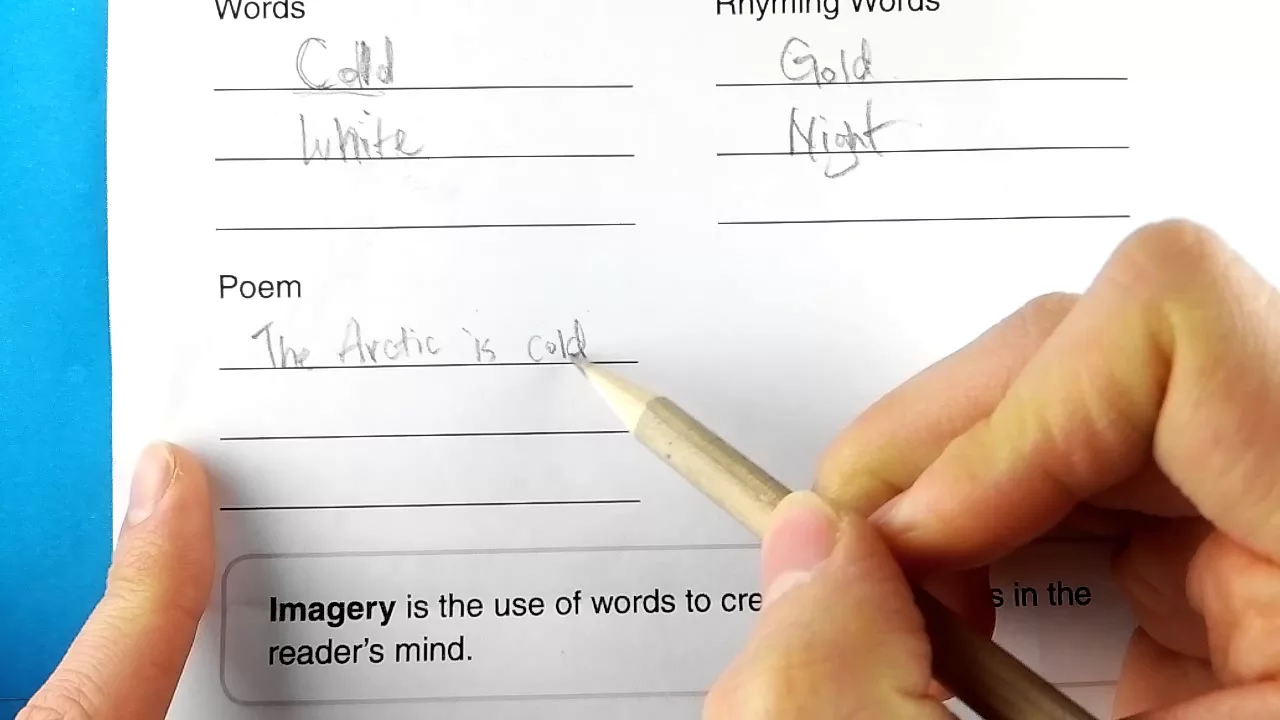 Words
Rhyming Words
Cold
Gold
White
Night
Poem
The Arctic is cold
Imagery is the use of words to cre s in the
reader's mind.